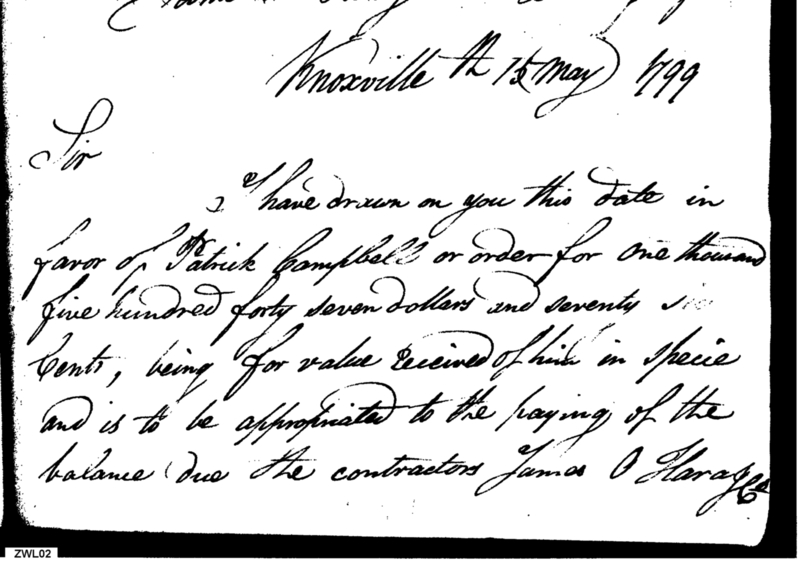 Knoxville th 15 May 1799
Sir
I have drawn on you this date in
favor of Patrick Campbell or order for one thousand
five hundred forty seven dollars and seventy
Cents, being for value received of him in specie
and is to be appropriated to the paying of the
balance due the contractors James O Hara & Co
ZWL02